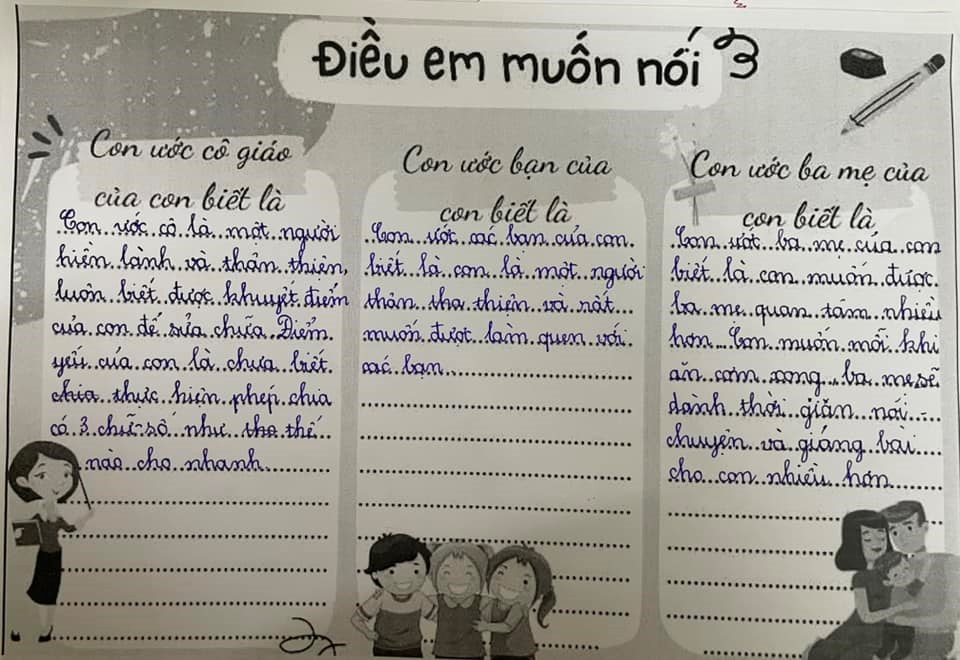 Điều em muốn nói
Con ước cô giáo
của con biết là
Con ước cô là một người
hiền lành và thân thiện,
luôn biết được khuyết điểm
của con để sửa chữa. Điểm
yếu của con là chưa biết
chia thực hiện phép chia
có 3 chữ số như tho thế
nào cho nhanh
Con ước bạn của
con biết là
Con ước các bạn của con
biết là con là một người
thân tha thiện và rất
muốn được làm quen với
các bạn
Con ước ba mẹ của
con biết là
Con ước ba mẹ của con
biết là con muốn được
ba mẹ quan tâm nhiều
hơn. Con muốn mỗi khi
ăn cơm xong ba mẹ sẽ
dành thời giãn nói
chuyện và giảng bài
cho con nhiều hơn